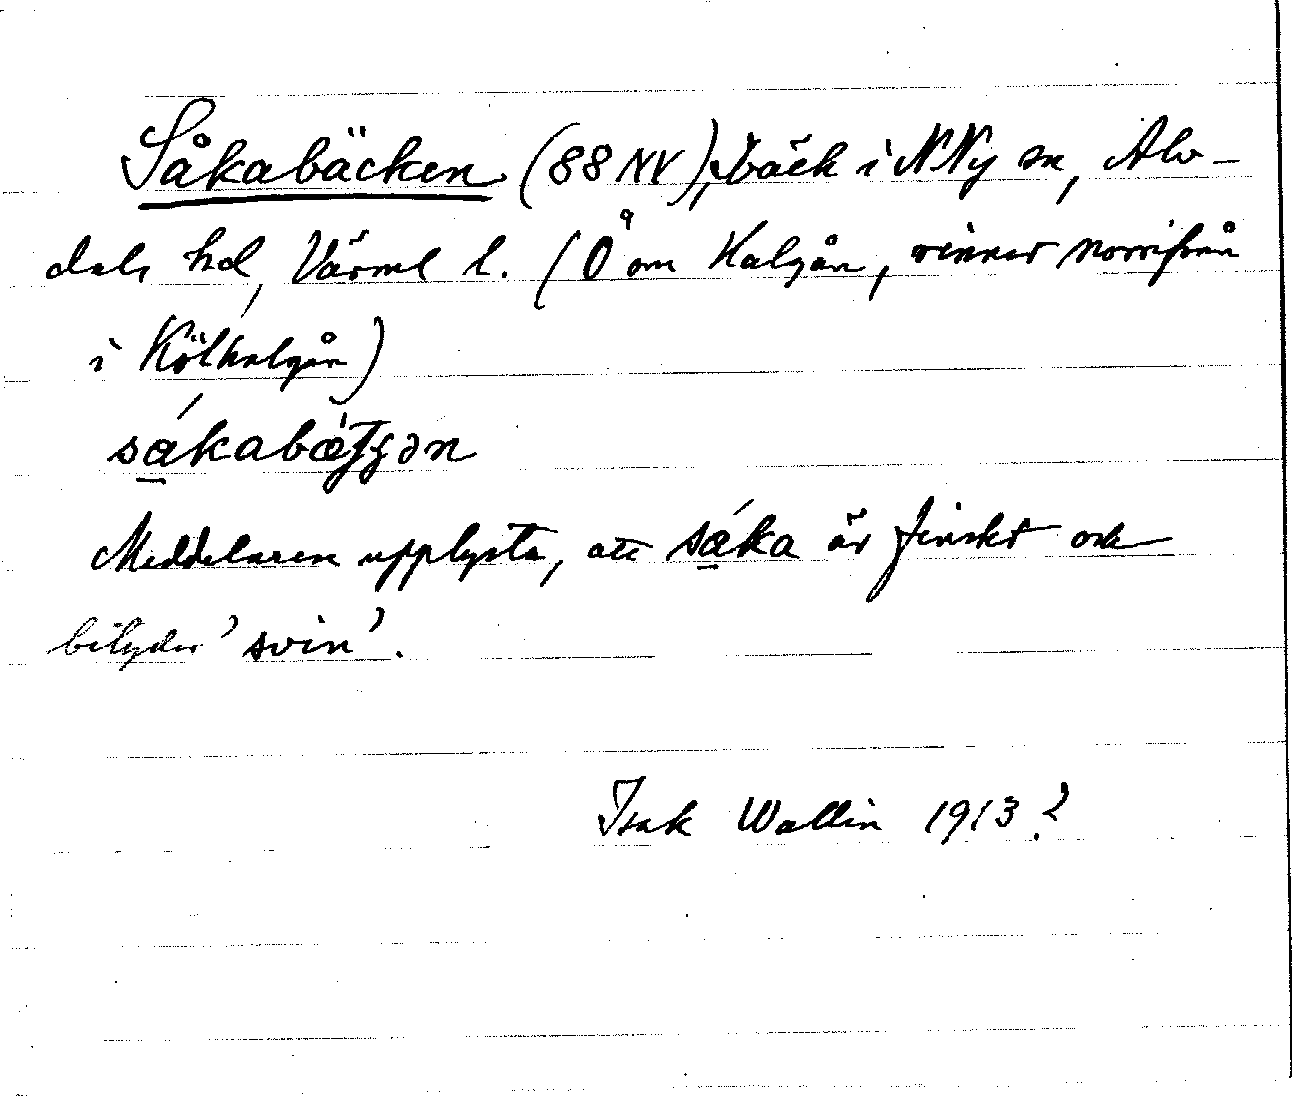 Såkabäcken (88 NV), bäck i NNy sn, Älv-
dals hd, Värml l. (Ö om Halgån, rinner norrifrån
i Kölhalgån)
Meddelaren upplyste, att såka är finskt och
betyder 'svin'.
Isak Wallin 1913?